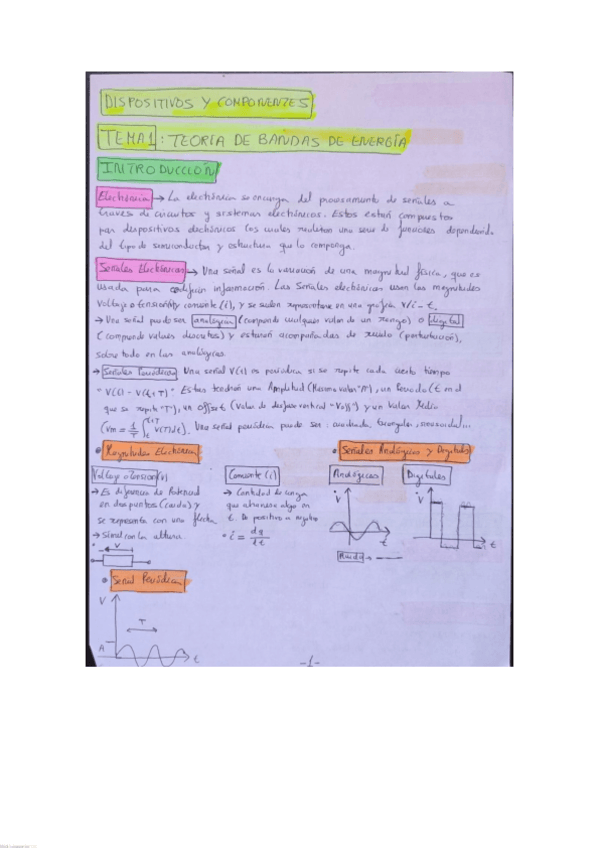 DISPOSITIVOS Y COMPONENTES
TEMA 1: TEORÍA DE BANDAS DE ENERGÍA
INTRODUCCIÓN
Electrónica → La electrónica se encarga del procesamiento de señales a
través de circuitos y sistemas electrónicos. Estos están compuestos
por dispositivos electrónicos los cuales realizan una serie de funciones dependiendo
del tipo de semiconductor y estructura que lo componga.
Señales Electrónicas → Una señal es la variación de una magnitud física, que es
usada para codificar información. Las Señales electrónicas usan las magnitudes
Voltaje o tensión(v) y corriente (i), y se suelen representar en una gráfica v/i - t.
→ Una señal puede ser analógica (comprende cualquier valor de un rango) o digital
(comprende valores discretos) y estarán acompañadas de ruido (perturbación),
sobre todo en las analógicas.
→ Señales Periódicas Una señal V(t) es periódica si se repite cada cierto tiempo
" V(t) = V(t+T) " Estas tendrán una Amplitud (Máximo valor "A"), un Periodo (t en el
que se repite "T"), un offset (Valor de desfase vertical "Voff") y un Valor Medio
(Vm = 1/T ∫ₜᵗ⁺ᵀ V(t)dt). Una señal periódica puede ser: cuadrada, triangular, sinusoidal...
• Magnitudes Electrónicas
• Señales Analógicas y Digitales
Voltaje o Tensión (v)
Corriente (i)
Analógicas
Digitales
→ Es diferencia de Potencial
en dos puntos (caída) y
se representa con una flecha
→ Símil con la altura.
→ Cantidad de carga
que atraviesa algo en
t. De positivo a negativo
• i = dq/dt
V
V
t
V
t
Ruido →
• Señal Periódica
V
T
A
t
-1-